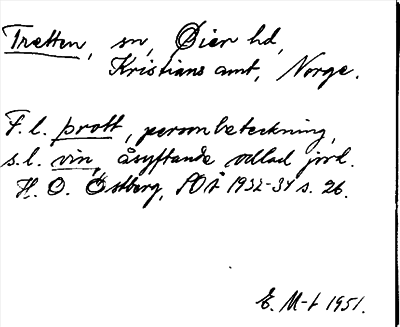 Tretten, sn, Øier hd,
Kristians amt, Norge.
F. l. prott, personbeteckning,
s. l. vin, åsyftande odlad jord.
H. O. Östberg, SOÅ 1932-34 s. 26.
E. M-t 1951.